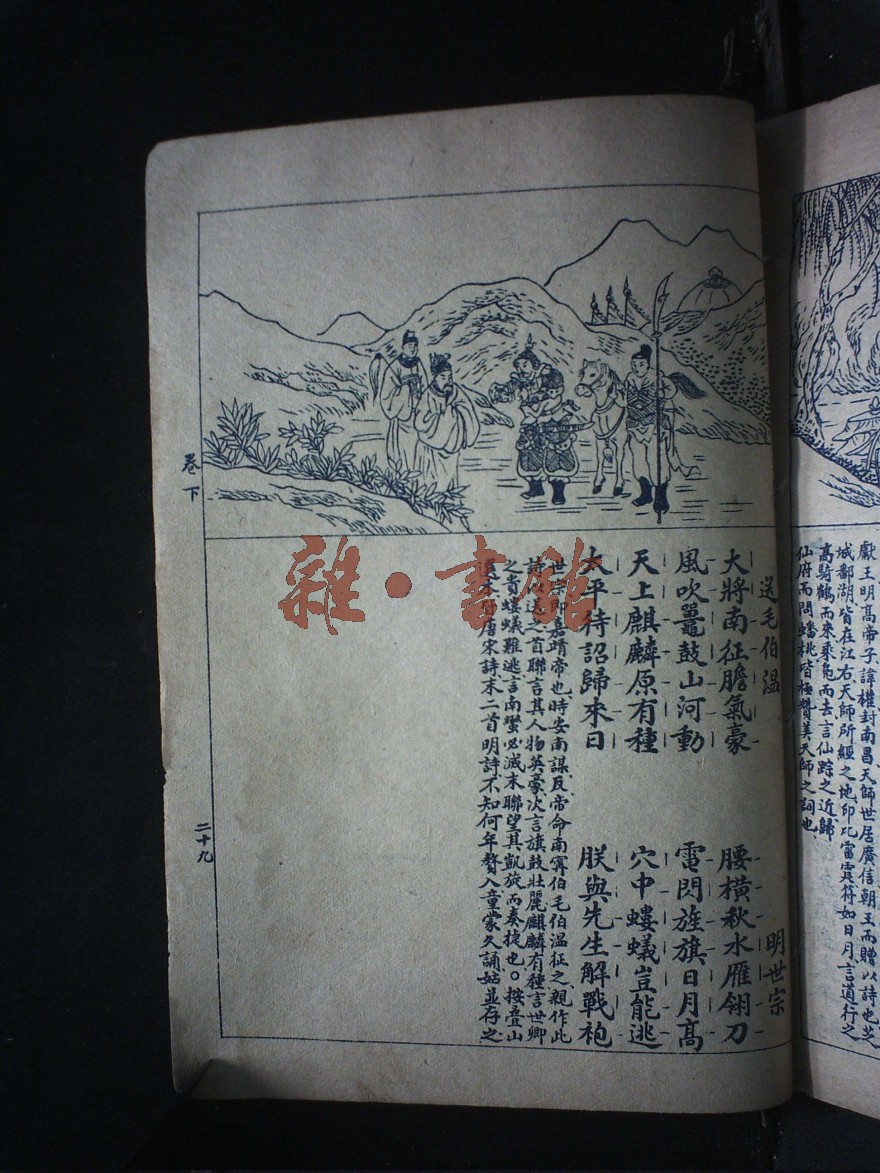 獻王明高帝子諱權封南昌天師世居廣信朝王而贈以詩也芷
城鄱湖皆在江右天師所經之地印比雷霆符如日月言道行之
高騎鶴而來乘鳧而去言仙踪之近歸
仙府而問蟠桃皆極贊美天師之詞也
送毛伯溫 明世宗
大將南征膽氣豪 腰橫秋水雁翎刀
風吹鼉鼓山河動 電閃旌旗日月高
天上麒麟原有種 穴中螻蟻豈能逃
太平待詔歸來日 朕與先生解戰袍
世宗即嘉靖帝也時安南謀反帝命南寧伯毛伯溫征之親作此
詩以送之首聯言其人物英豪次言旗鼓壯麗麒麟有種言世卿
之貴螻蟻難逃言南蠻必滅末聯望其凱旋而奏捷也。按疊山
選本係唐宋詩末二首明詩不知何年贅入童蒙久誦姑並存之
卷下
二十九
雜·書館